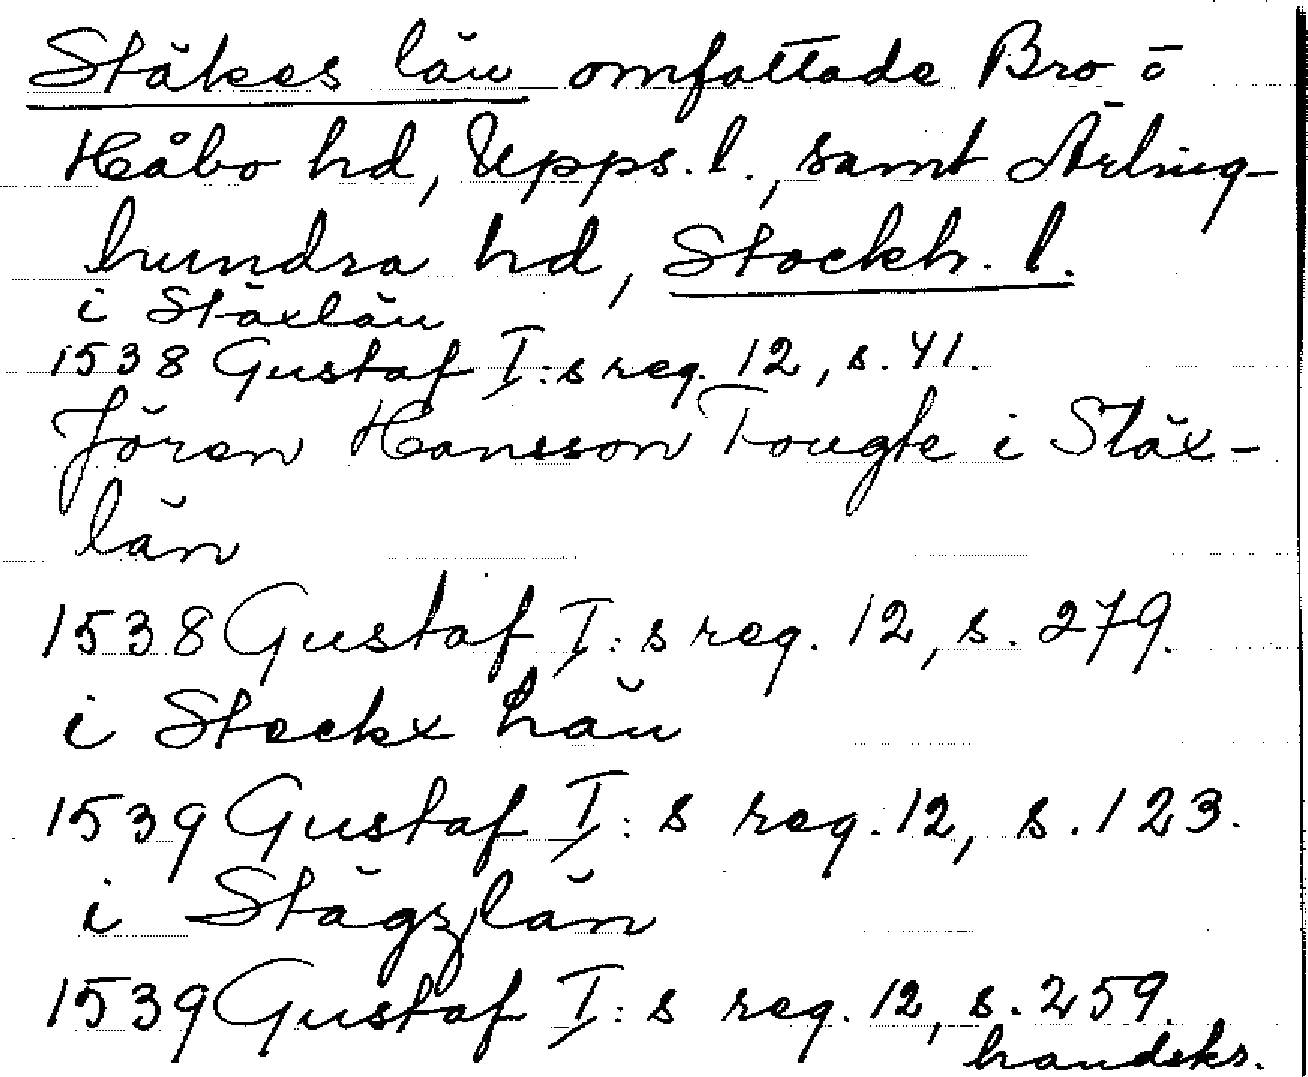 Stäkes län omfattade Bro o
Håbo hd, Upps. l., samt Ärling-
hundra hd, Stockh. l.
i Stäxlän
1538 Gustaf I:s reg. 12, s. 41.
Jören Hansson Tougle i Stäx-
län
1538 Gustaf I:s reg. 12, s. 279.
i Steckx län
1539 Gustaf I:s reg. 12, s. 123.
i Stägzlän
1539 Gustaf I:s reg. 12, s. 259.
handskr.